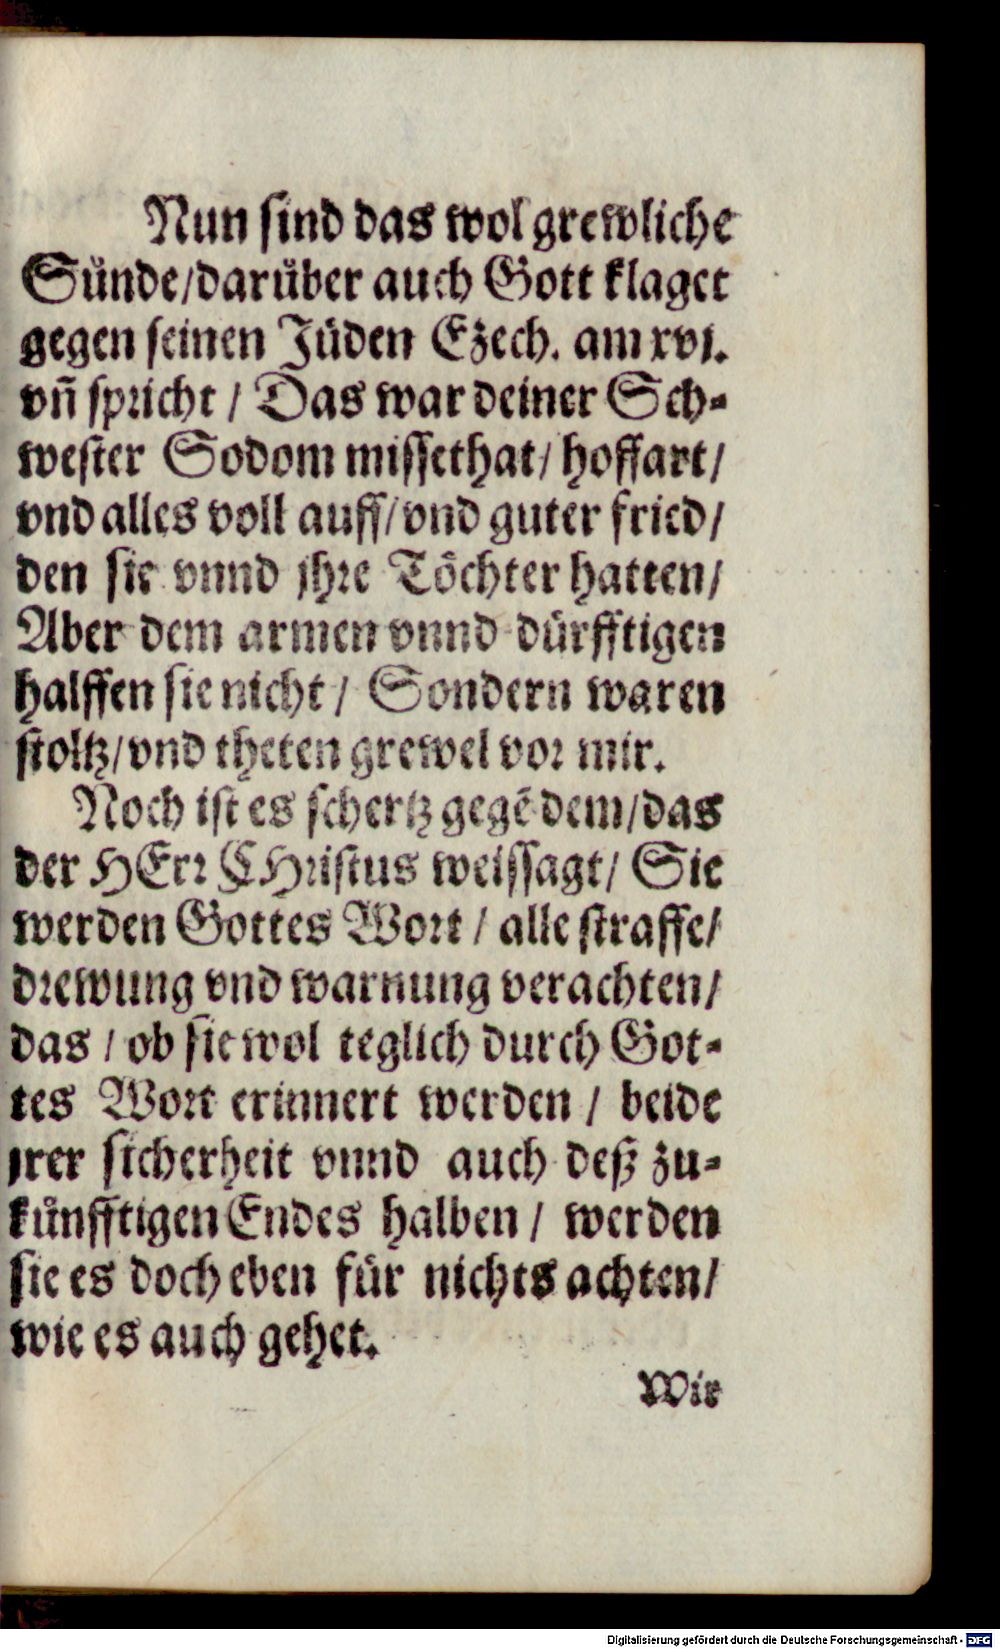 Nun sind das wol grewliche
Sünde/darüber auch Gott klaget
gegen seinen Jüden Ezech. am xvj.
vñ spricht / Das war deiner Sch-
wester Sodom missethat/ hoffart/
vnd alles voll auff/vnd guter fried/
den sie vnnd jhre Töchter hatten/
Aber dem armen vnnd dürfftigen
halffen sie nicht / Sondern waren
stoltz/vnd theten grewel vor mir.
Noch ist es schertz gegẽ dem/das
der HErr CHristus weissagt/ Sie
werden Gottes Wort / alle straffe/
drewung vnd warnung verachten/
das / ob sie wol teglich durch Got-
tes Wort erinnert werden / beide
jrer sicherheit vnnd auch deß zu-
künfftigen Endes halben / werden
sie es doch eben für nichts achten/
wie es auch gehet.
Wir
Digitalisierung gefördert durch die Deutsche Forschungsgemeinschaft - DFG